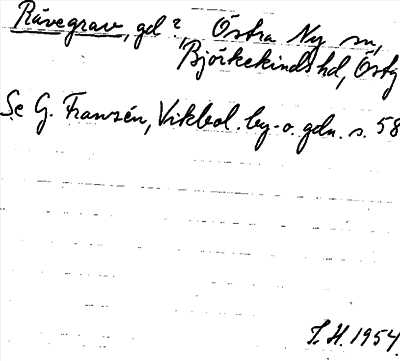 Rävegrav, gd? Östra Ny sn,
Björkekinds hd, Östg
Se G. Franzén, Vikbol. by- o. gdn. s. 58
I.H. 1954.